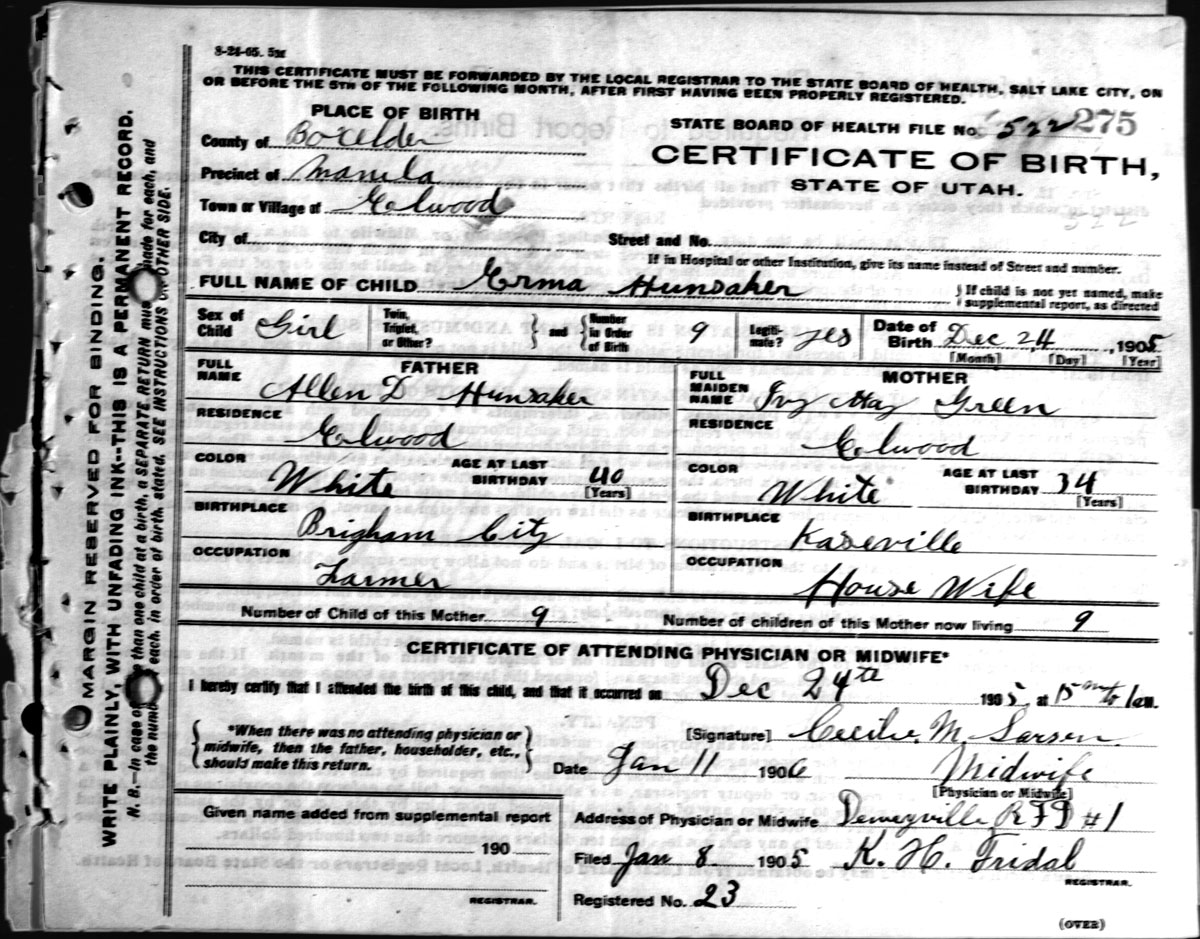 8-28-05. 5M
THIS CERTIFICATE MUST BE FORWARDED BY THE LOCAL REGISTRAR TO THE STATE BOARD OF HEALTH, SALT LAKE CITY, ON
OR BEFORE THE 5TH OF THE FOLLOWING MONTH, AFTER FIRST HAVING BEEN PROPERLY REGISTERED.
PLACE OF BIRTH
STATE BOARD OF HEALTH FILE No. 522 275
County of Boxelder
CERTIFICATE OF BIRTH,
Precinct of Manila
STATE OF UTAH.
Town or Village of Elwood
522
City of Street and No.
If in Hospital or other Institution, give its name instead of Street and number.
FULL NAME OF CHILD Erma Hunsaker } If child is not yet named, make supplemental report, as directed
Sex of Child Girl Twin, Triplet, or Other? } and { Number in Order of Birth 9 Legiti- mate? yes Date of Birth Dec 24, 1905
[Month] [Day] [Year]
FATHER
FULL NAME Allen D Hunsaker
RESIDENCE Elwood
COLOR White AGE AT LAST BIRTHDAY 40
[Years]
BIRTHPLACE Brigham City
OCCUPATION Farmer
MOTHER
FULL MAIDEN NAME Ivy May Green
RESIDENCE Elwood
COLOR White AGE AT LAST BIRTHDAY 34
[Years]
BIRTHPLACE Kaseville
OCCUPATION House Wife
Number of Child of this Mother 9 Number of children of this Mother now living 9
CERTIFICATE OF ATTENDING PHYSICIAN OR MIDWIFE*
I hereby certify that I attended the birth of this child, and that it occurred on Dec 24th 1905, at 15 to 1 am.
{ *When there was no attending physician or midwife, then the father, householder, etc., should make this return. }
[Signature] Cecilie M. Larsen
Date Jan 11 1906 Midwife
[Physician or Midwife]
Given name added from supplemental report
190
REGISTRAR.
Address of Physician or Midwife Deweyville RFD #1
Filed Jan 8 1905 K. H. Fridal
REGISTRAR.
Registered No. 23
(OVER)
MARGIN RESERVED FOR BINDING.
WRITE PLAINLY, WITH UNFADING INK--THIS IS A PERMANENT RECORD.
N. B.--In case of than one child at a birth, a SEPARATE RETURN must made for each, and
the number each, in order of birth, stated, SEE INSTRUCTIONS OTHER SIDE.